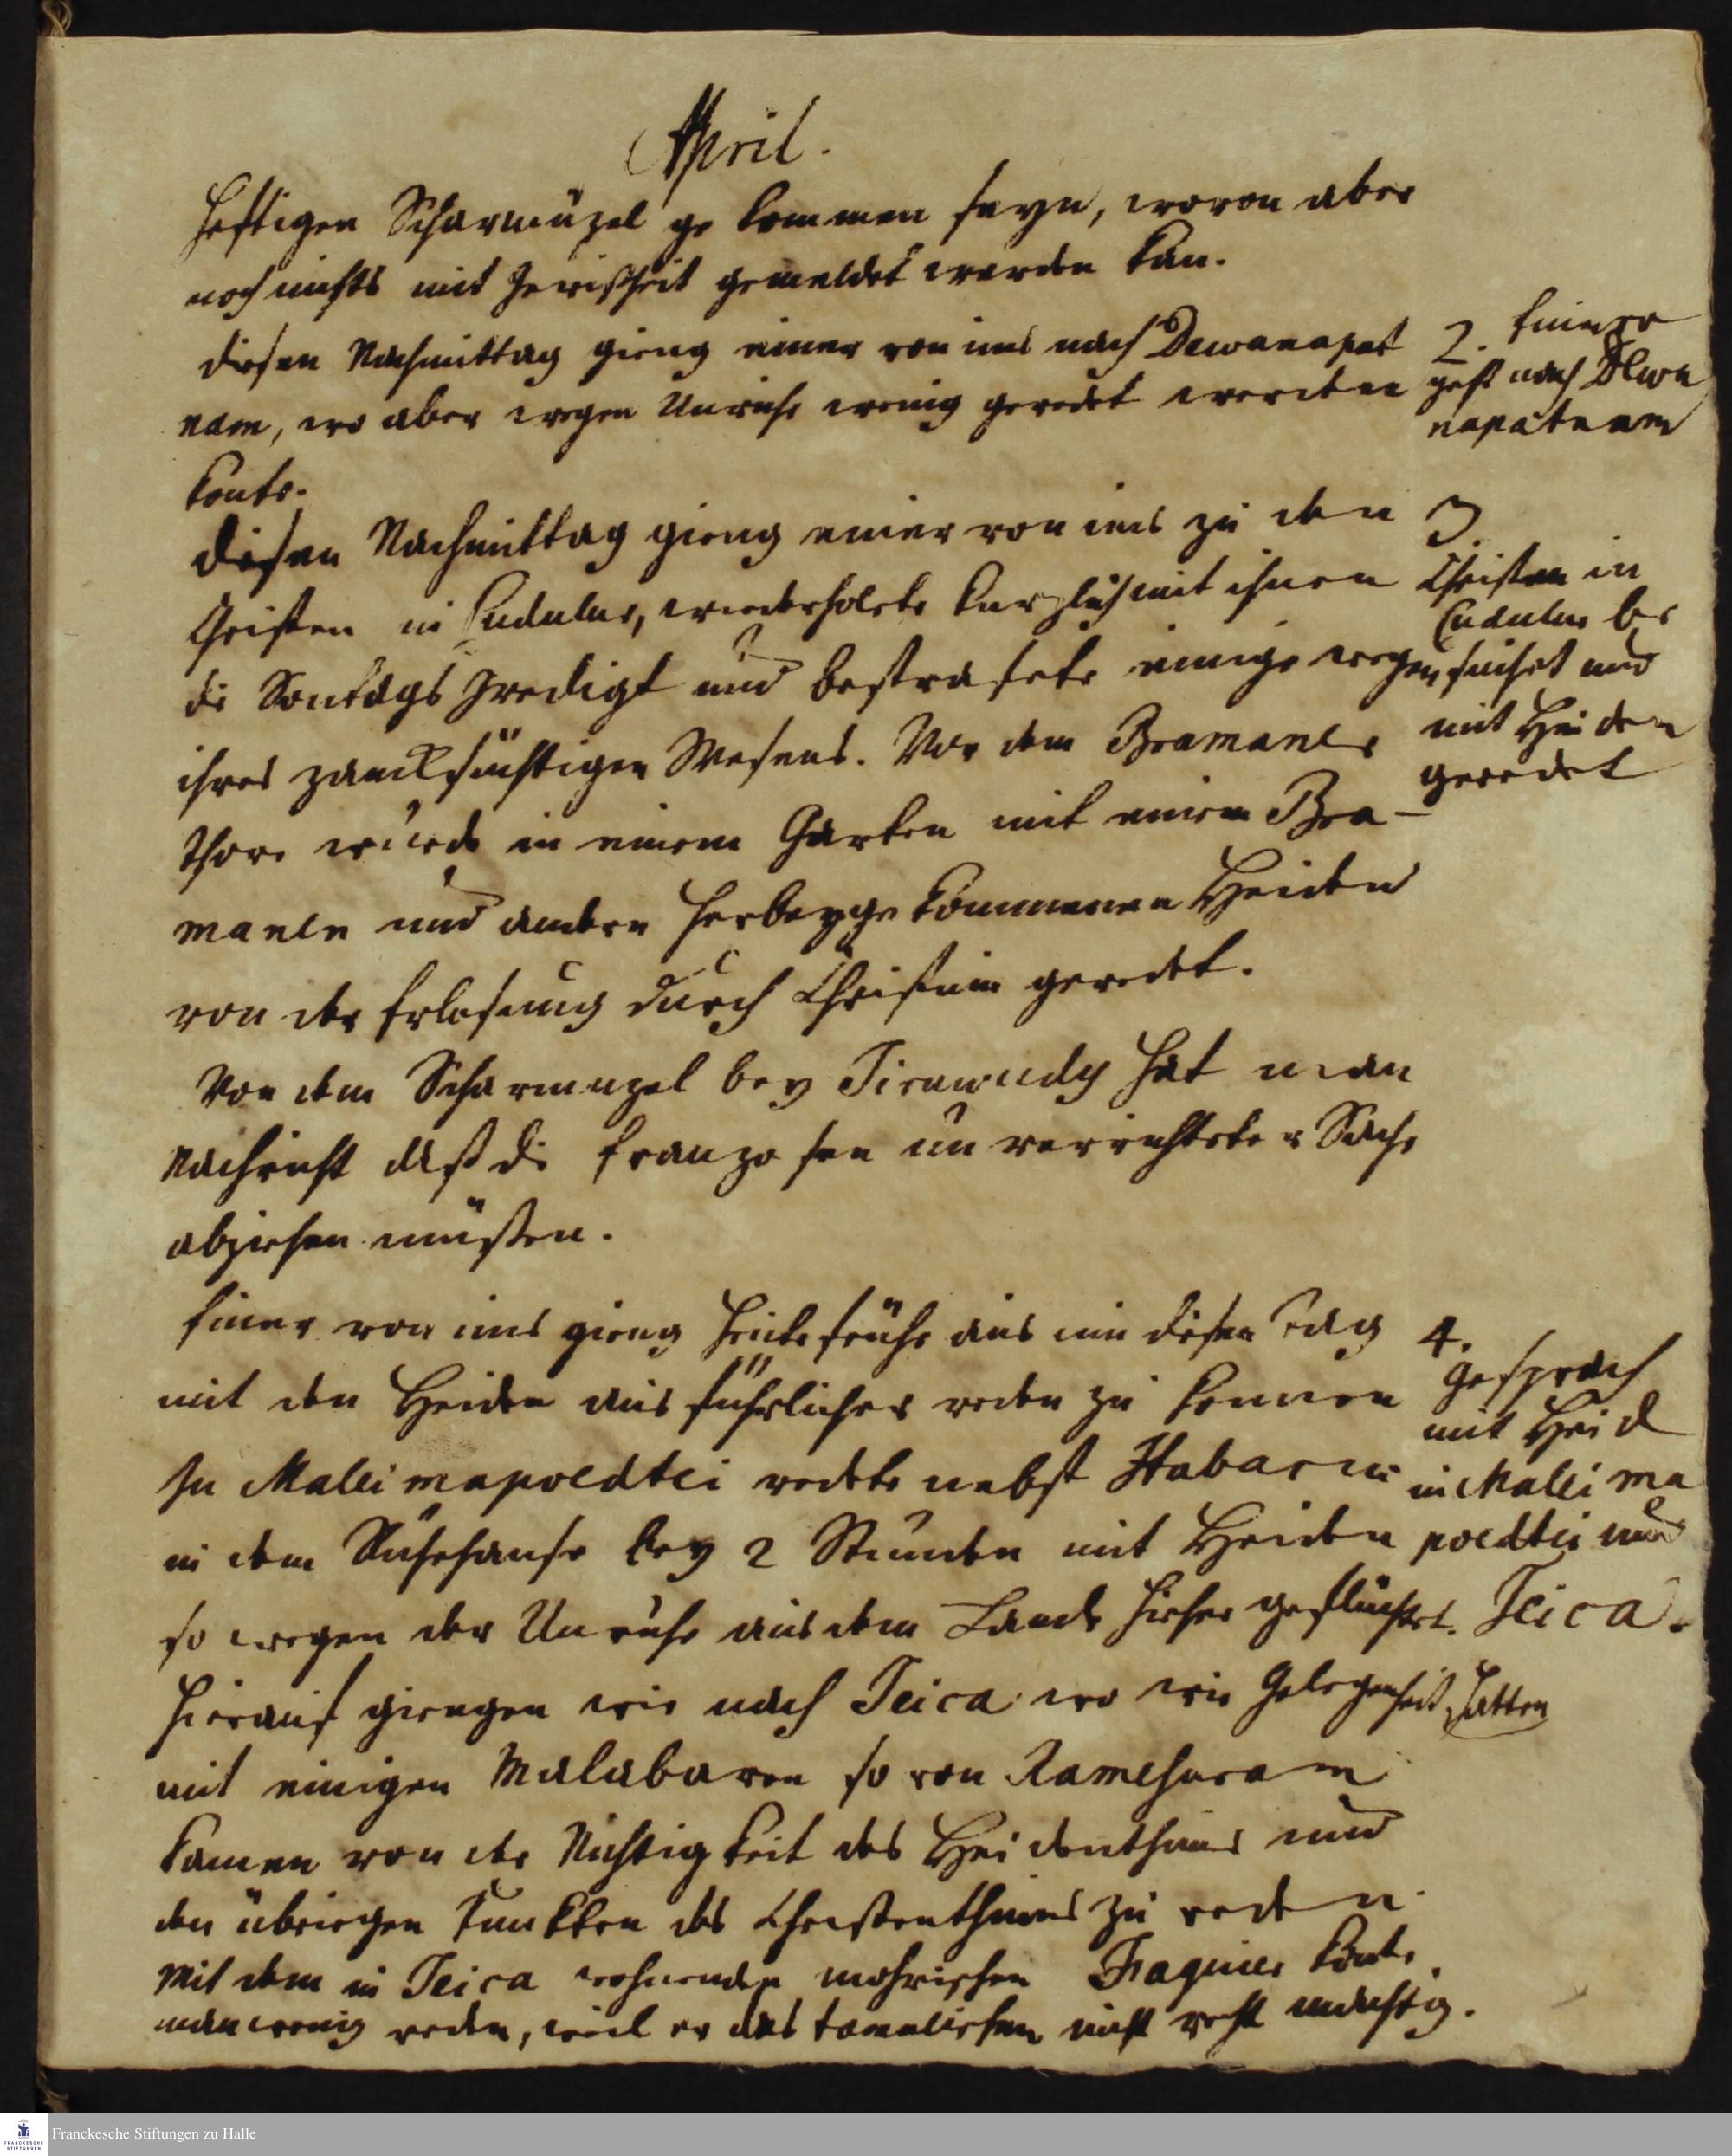 April.
heftigen Scharmüzel gekommen seyn, wovon aber
noch nichts mit Gewißheit gemeldet werden kan.
Diesen Nachmittag gieng einer von uns nach Dewanapat
nam, wo aber wegen Unruhe wenig geredet werden
konte.
2. Einer
geht nach Dewa
napatnam
Diesen Nachmittag gieng einer von uns zu den
Christen in Cudulur, wiederholete kurzlich mit ihnen
die Sontags Predigt und bestrafete einige wegen
ihres zancksüchtigen Wesens. Vor dem Bramaner
Thore wurde in einem Garten mit einem Bra-
manen und andern herbeygekommenen Heiden
von der Erlosung durch Christum geredet.
3
Christen in
Cudulur be
suchet und
mit Heiden
geredet
Von dem Scharmuzel bey Tirawudy hat man
Nachricht daß die Franzosen unverrichteter Sache
abziehen müßen.
Einer von uns gieng heute frühe aus um diesen Tag
mit den Heiden ausführlicher reden zu konnen
In Mallimapoedtei redete nebst
in dem Ruhehause bey 2 Stunden mit Heiden
so wegen der Unruhe aus dem Lande hieher geflüchtet.
4.
Gesprach
mit Heid
in Mallima
poedtei und
Teica.
Hierauf giengen wir nach Teica wo wir Gelegenheit hatten
mit einigen Malabaren so von Ramesuram
kamen von der Nichtigkeit des Heidenthums und
den übrigen Punkten des Christenthums zu reden.
Mit dem in Teica wohnenden mohrischen Faquier konte
man wenig reden, weil er des tamulischen nicht recht machtig.
Franckesche Stiftungen zu Halle
FRANCKESCHE
STIFTUNGEN